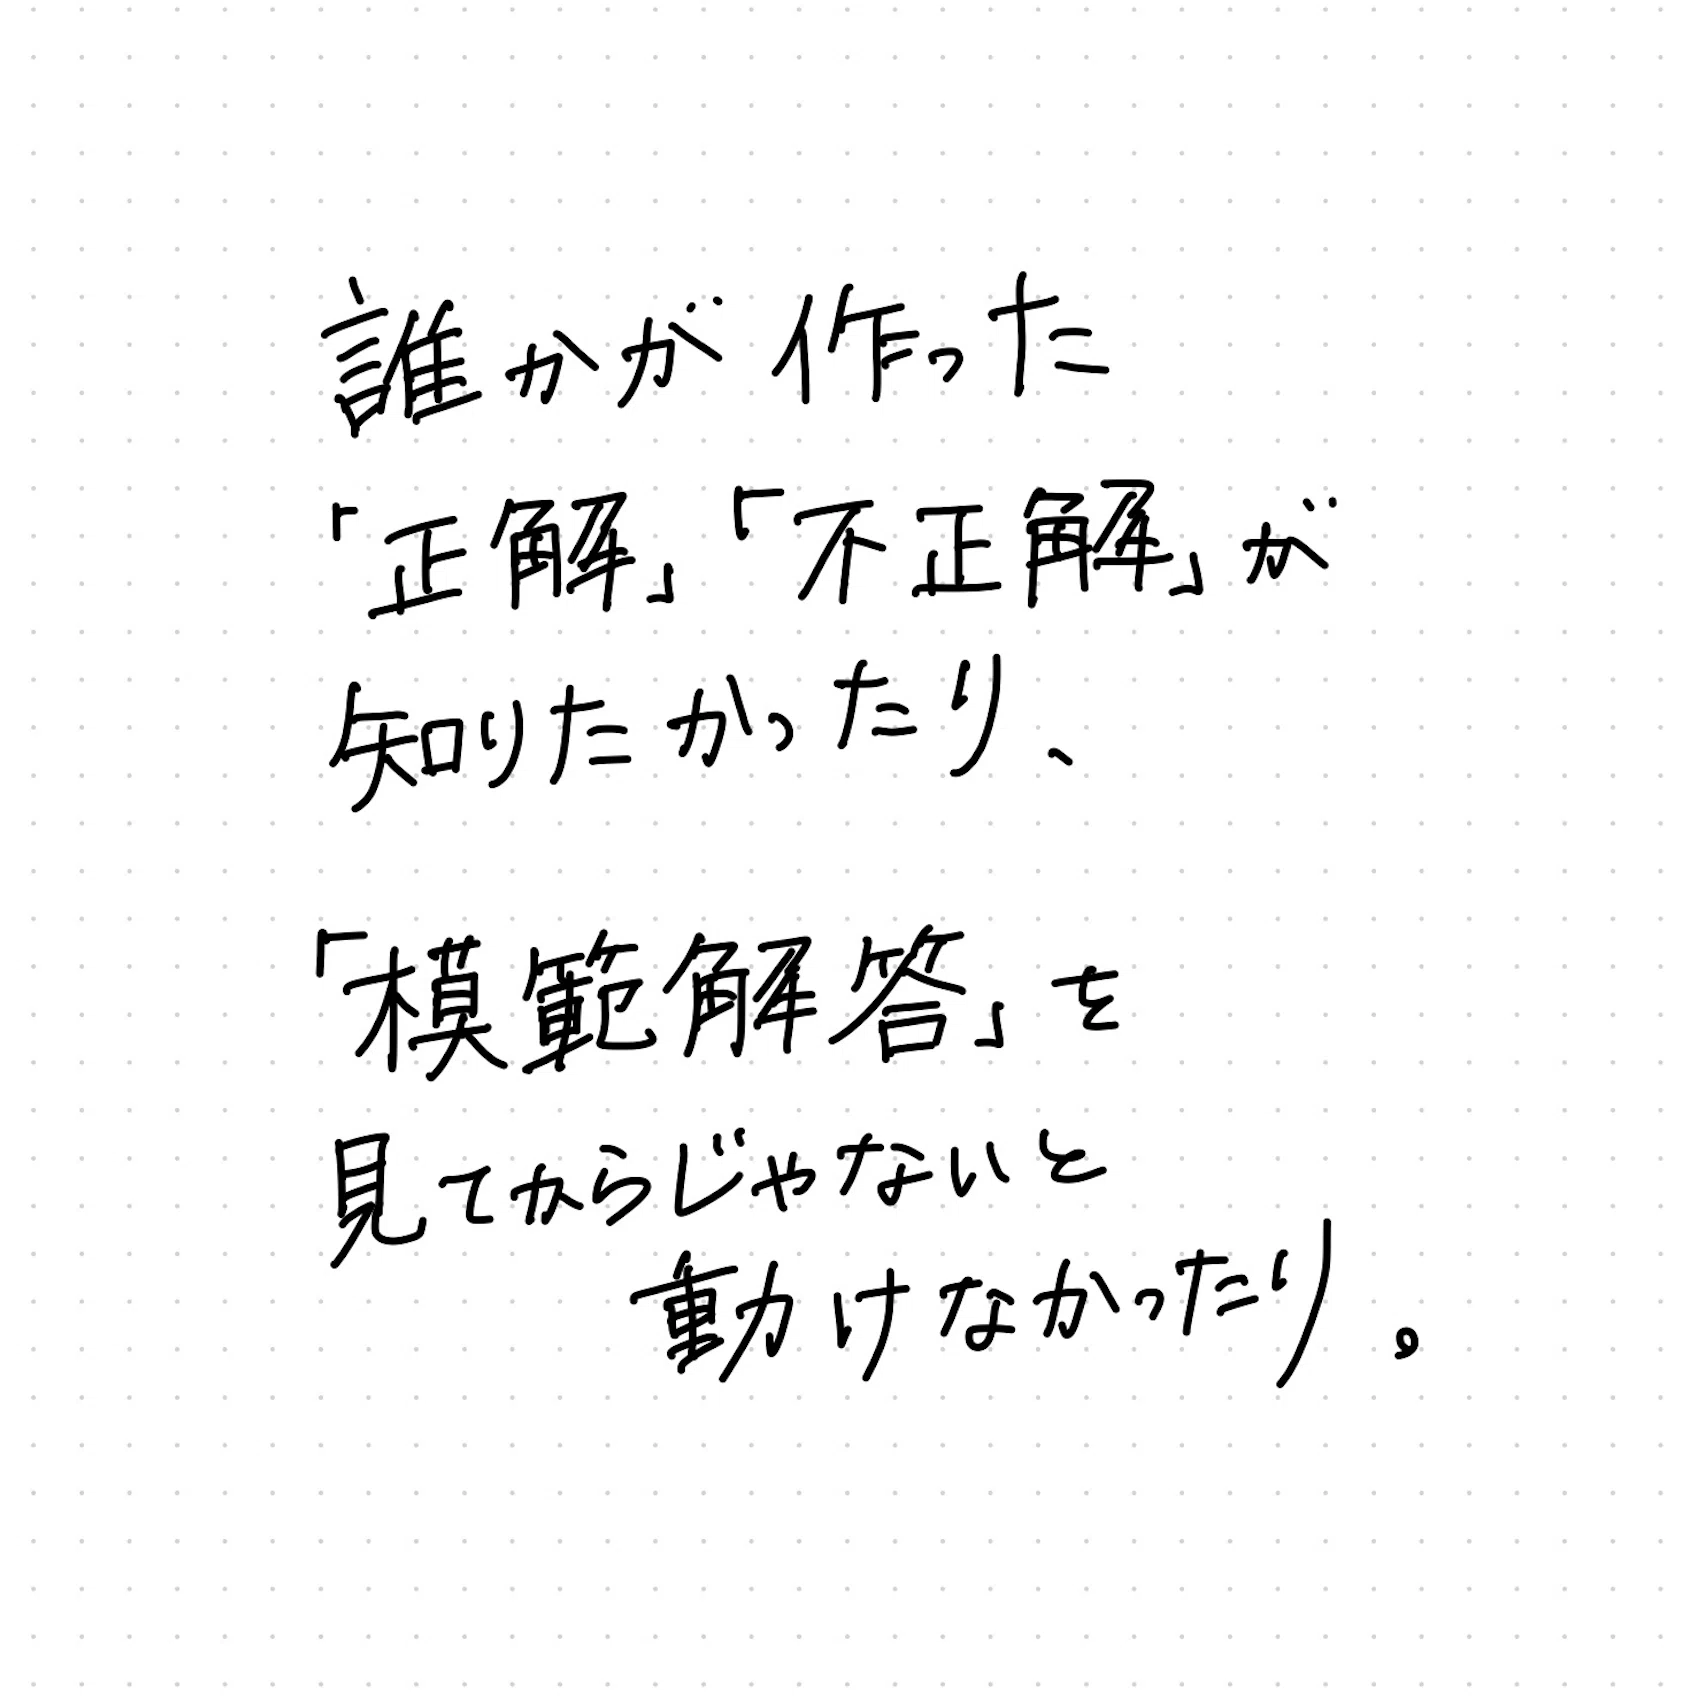 誰かが作った
「正解」「不正解」が
知りたかったり、
「模範解答」を
見てからじゃないと
動けなかったり。